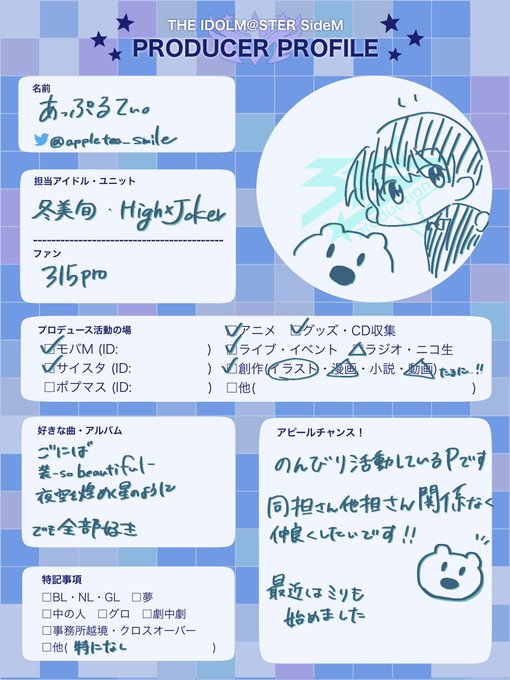 THE IDOLM@STER SideM
PRODUCER PROFILE
名前
あっぷるてぃ。
@appletea_smile
担当アイドル・ユニット
冬美旬・High×Joker
ファン
315pro
プロデュース活動の場
☑モバM (ID: )
☑サイスタ (ID: )
□ポプマス (ID: )
☑アニメ ☑グッズ・CD収集
☑ライブ・イベント □ラジオ・ニコ生
☑創作(イラスト・漫画・小説・動画) たまに!!
□他( )
好きな曲・アルバム
ごにほば
装-so beautiful-
夜空を煌めく星のように
でも全部好き
アピールチャンス！
のんびり活動しているPです
同担さん他担さん関係なく
仲良くしたいです!!
最近はミリも
始めました
特記事項
□BL・NL・GL □夢
□中の人 □グロ □劇中劇
□事務所越境・クロスオーバー
□他( 特になし )